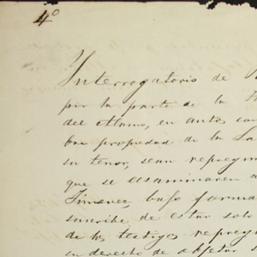 4º
Interrogatorio de
por la parte de la
del Alamo, en autos con
bre propiedad de la La
su tenor, sean repregun
que se examinaren a
Jimenez, bajo forma
inscribe de estar solo
de los testigos repregu
en derecho de